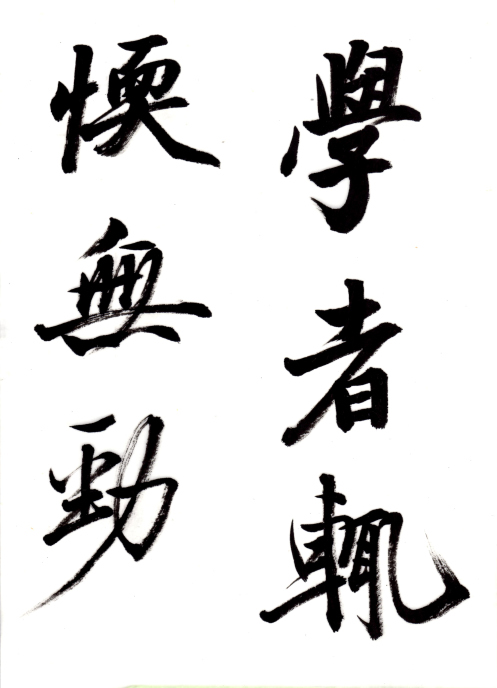 學者輒
愞無勁